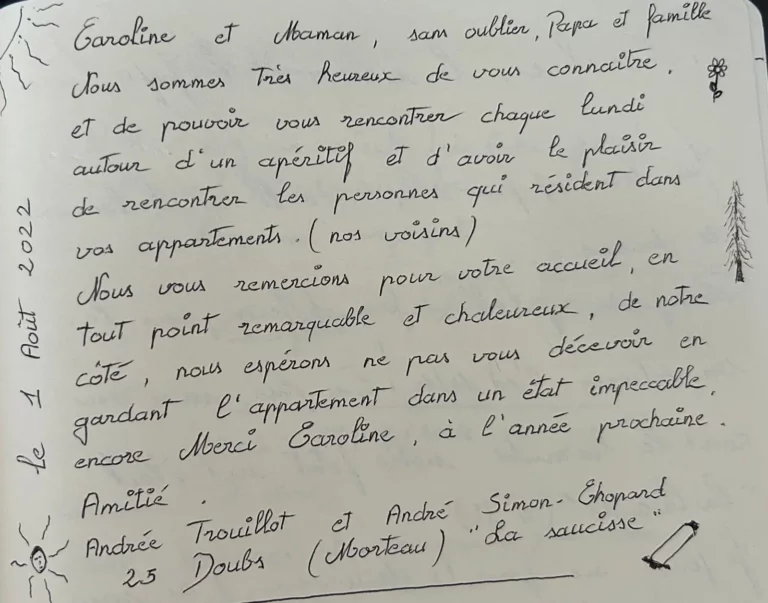 Caroline et Maman, sans oublier, Papa et famille
Nous sommes Très heureux de vous connaitre,
et de pouvoir vous rencontrer chaque lundi
autour d'un apéritif et d'avoir le plaisir
de rencontrer les personnes qui résident dans
vos appartements. (nos voisins)
Nous vous remercions pour votre accueil, en
tout point remarquable et chaleureux, de notre
côté, nous espérons ne pas vous décevoir en
gardant l'appartement dans un état impeccable,
encore Merci Caroline, à l'année prochaine.
Amitié.
Andrée Trouillot et André Simon-Chopard
25 Doubs (Morteau) "La saucisse"
le 1 Août 2022